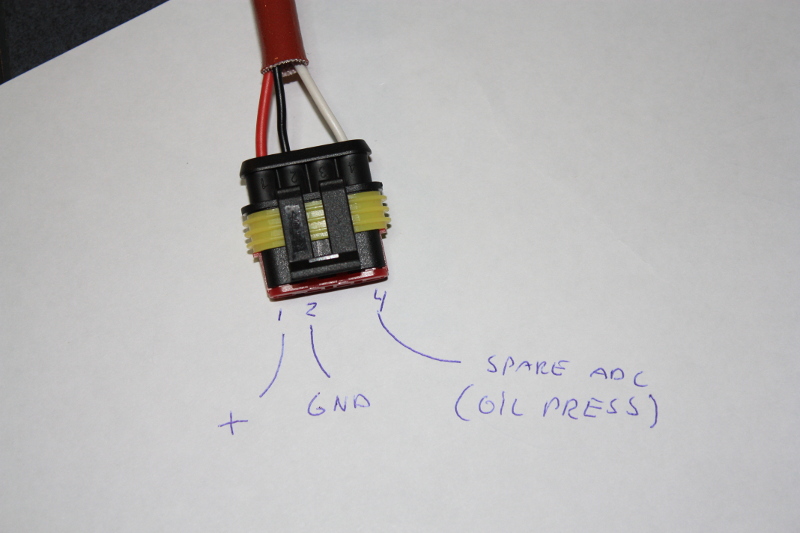 1 2 4
+ GND SPARE ADC
(OIL PRESS)